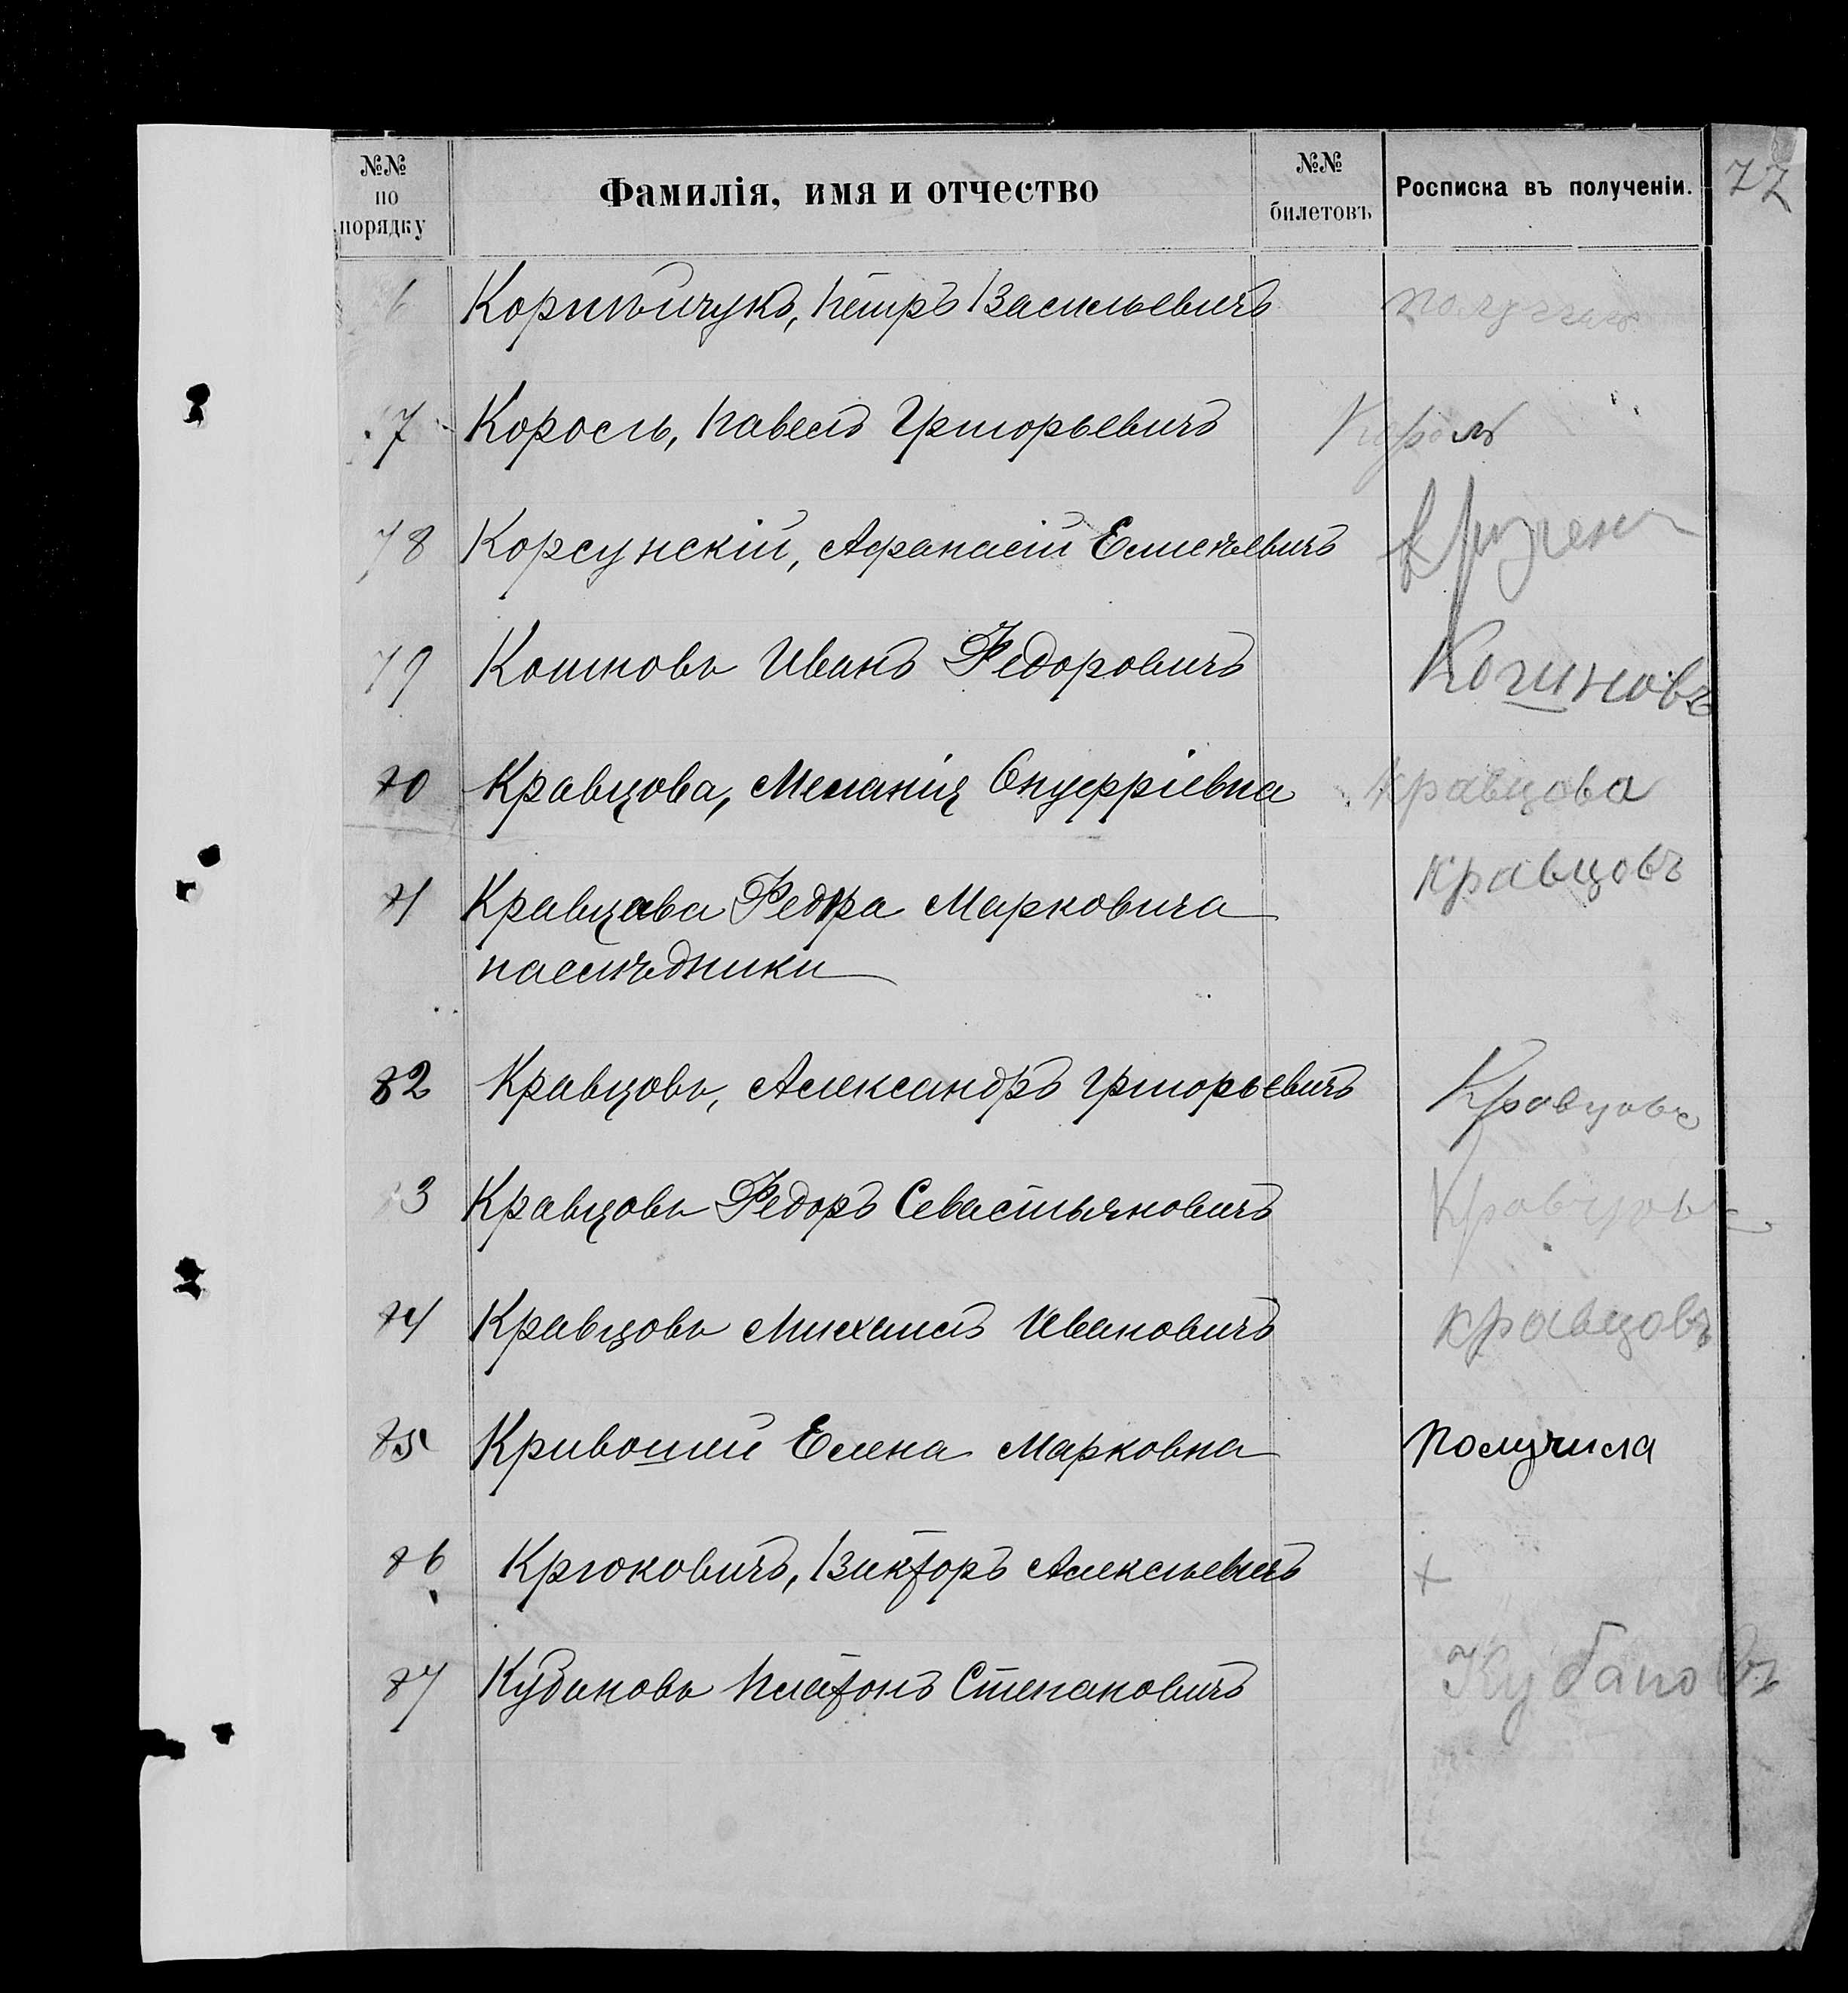 №№ по порядку Фамилія, имя и отчество №№ билетовъ Росписка въ полученіи. 77
6 Корнѣйчукъ, Петръ Васильевичъ получилъ
7 Король, Павелъ Григорьевичъ Король
78 Корсунскій, Афанасій Елисеевичъ
79 Кошновъ Иванъ Федоровичъ Кошновъ
80 Кравцова, Меланія Онуфріевна Кравцова
81 Кравцова Федора Марковича Кравцовъ
наслѣдники
82 Кравцовъ, Александръ Григорьевичъ Кравцовъ
83 Кравцовъ Федоръ Севастьяновичъ Кравцовъ
84 Кравцовъ Михаилъ Ивановичъ Кравцовъ
85 Кривошей Елена Марковна Получила
86 Крюковичъ, Викторъ Алексѣевичъ +
87 Кубановъ Платонъ Степановичъ Кубановъ